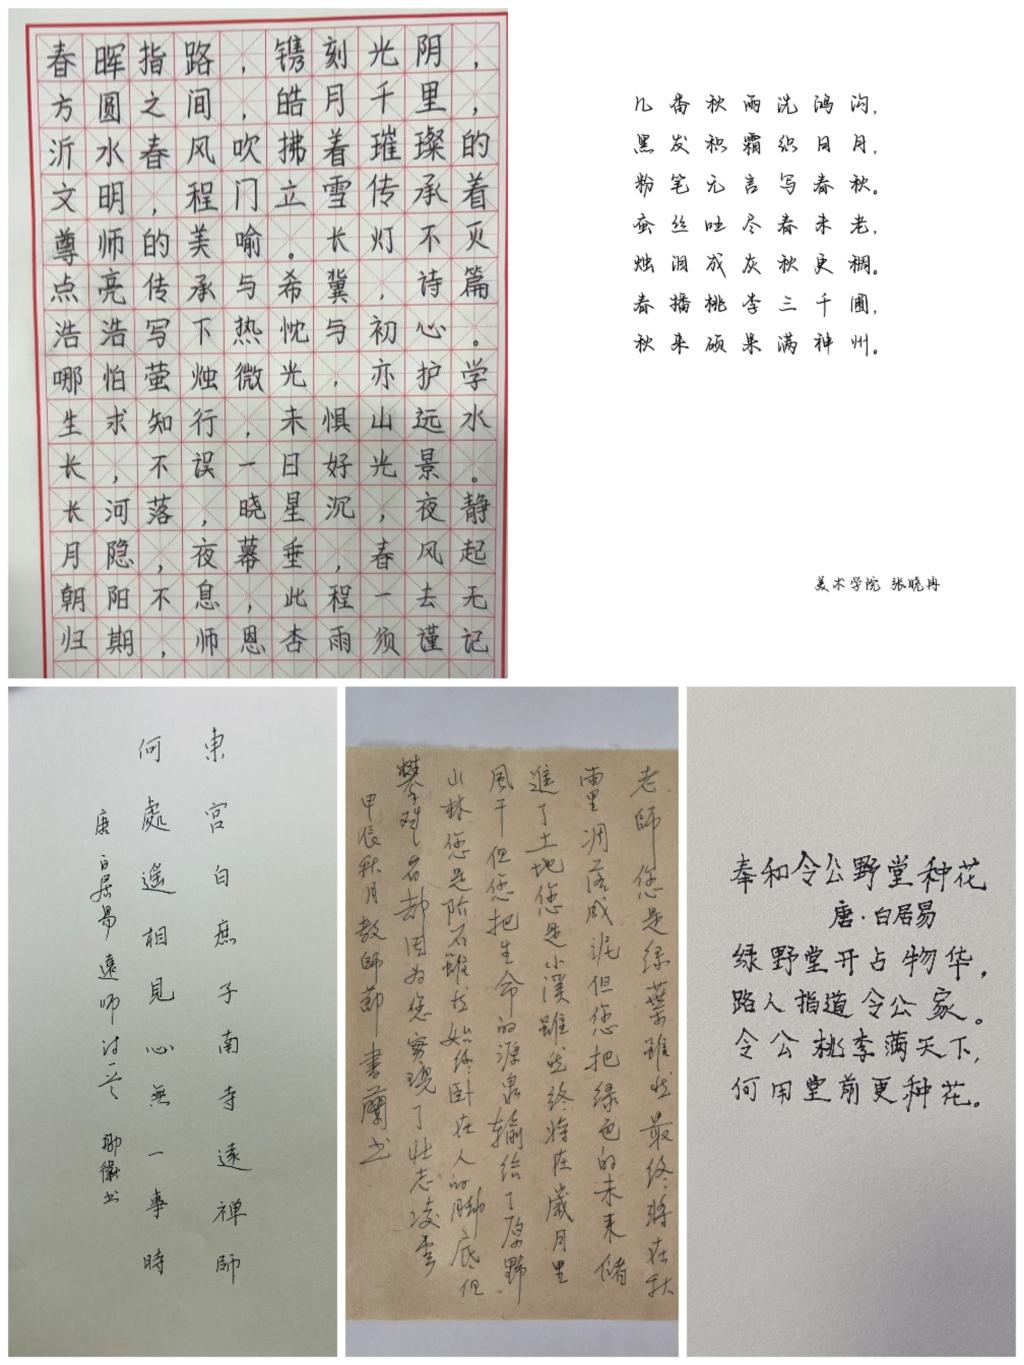 春晖指路，镌刻光阴，
方圆之间，皓月千里，
沂水春风吹拂着璀璨的
文明，程门立雪传承着
尊师的美喻。长灯不灭
点亮传承与希冀，诗篇
浩浩写下热忱与初心。
哪怕萤烛微光，亦护学
生求知行，未惧山远水
长，不误一日好光景。
长河落，晓星沉，夜静
月隐，夜幕垂，春风起
朝阳不息，此程一去无
归期，师恩杏雨须谨记
几番秋雨洗鸿沟，
黑发积霜织日月，
粉笔无言写春秋。
蚕丝吐尽春未老，
烛泪成灰秋更稠。
春播桃李三千圃，
秋来硕果满神州。
美术学院 张晓冉
東宫白庶子南寺遠禅師
何處遙相見心無一事時
唐 白居易遠師詩一首
老師 您是绿葉雖然最终将在秋
雨里凋落成泥但您把绿色的未来储
進了土地您是小溪雖然终将在嵗月里
風干但您把生命的源泉输给了原野
山林您是阶石雖然始终卧在人的脚底但
攀登者却因为您實現了壮志凌雲
甲辰秋月教師節 書蘭书
奉和令公野堂种花
唐·白居易
绿野堂开占物华，
路人指道令公家。
令公桃李满天下，
何用堂前更种花。